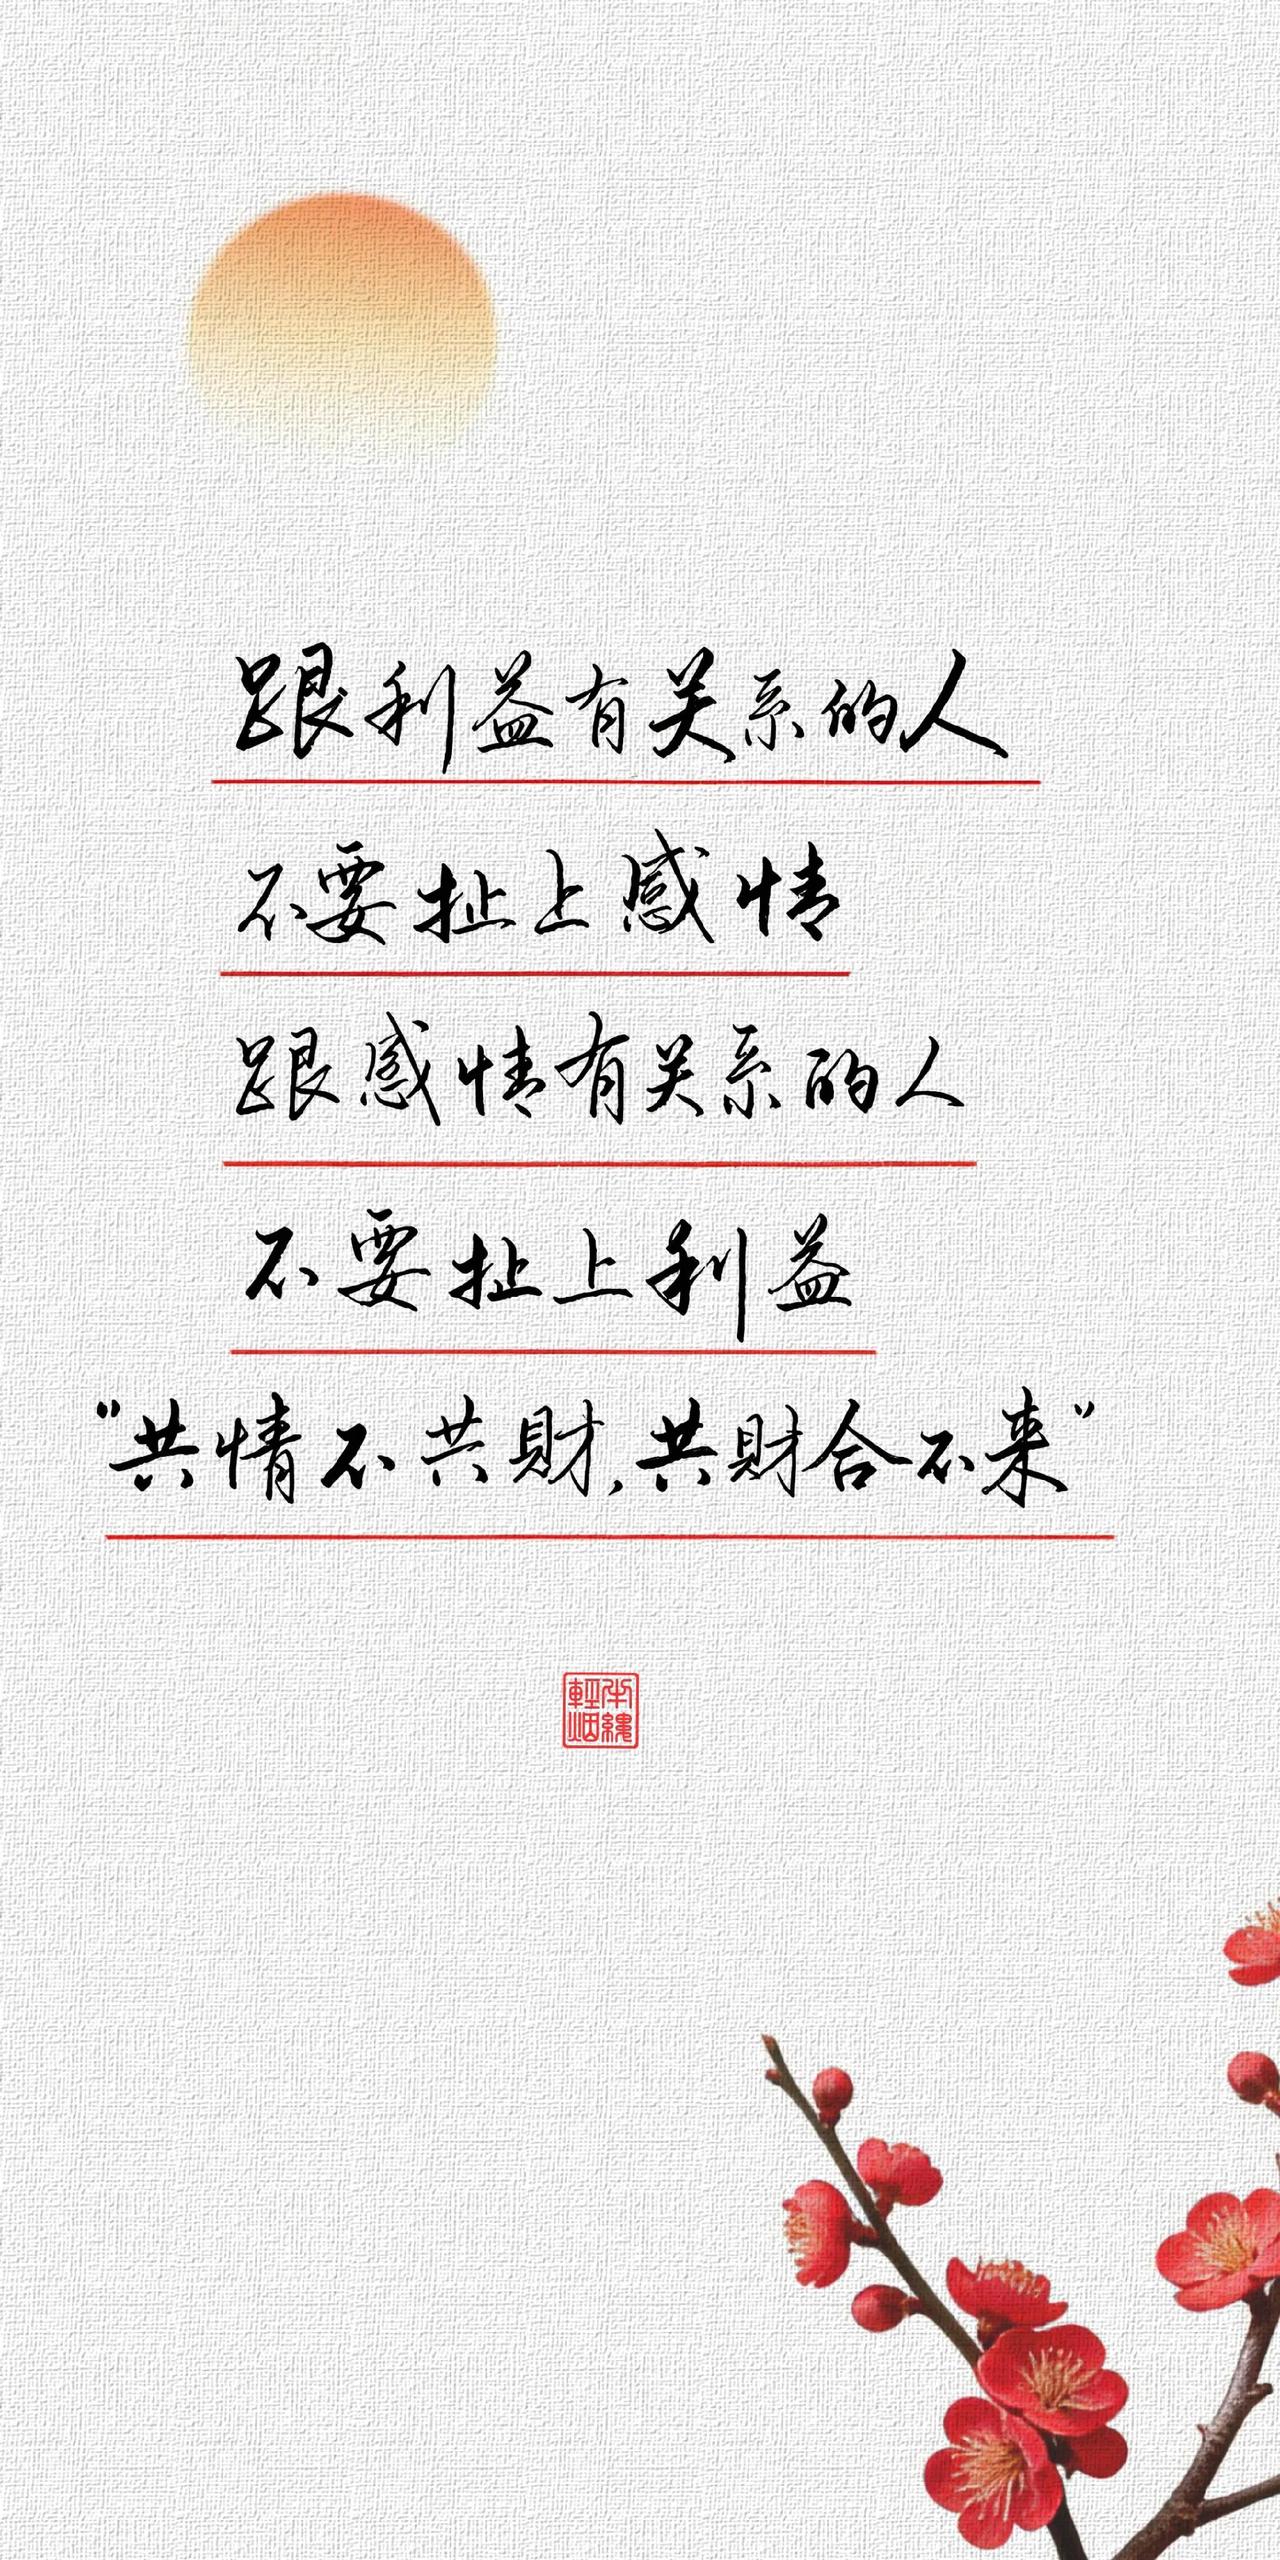 跟利益有关系的人
不要扯上感情
跟感情有关系的人
不要扯上利益
"共情不共財,共財合不来"